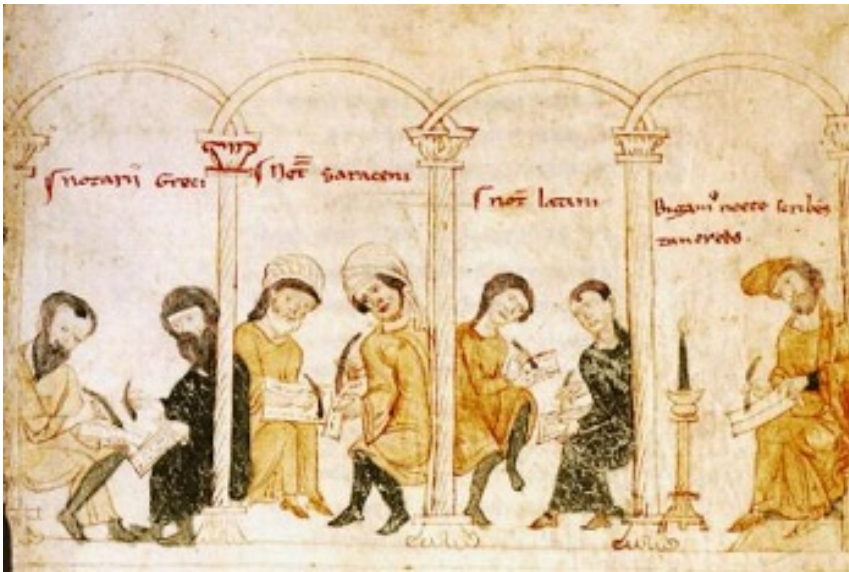 notarii Greci
Not̄ saraceni
not̄ latini
Bigamꝰ nocte scribēs
tancredo.